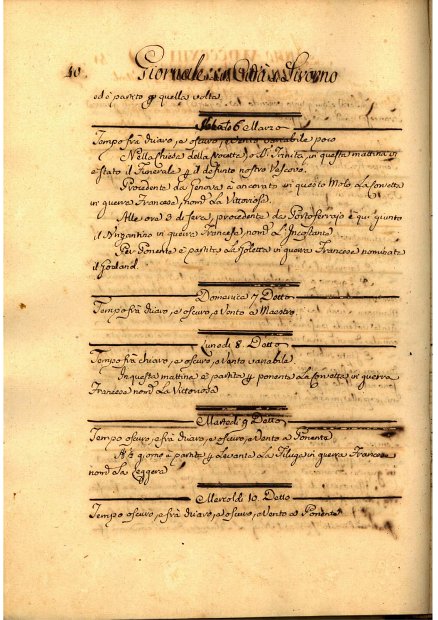 40. Giornale della Città di Livorno
ed è partito per quella volta
Sabato 6 Marzo
Tempo frà chiaro, e oscuro, e Vento variabile poco
Nella Chiesa della SS. Trinità, in questa mattina vi
è stato il Funerale per il defunto nostro Vescovo.
Procedente da Genova è ancorato in questo Molo la Corvetta
in guerra Francese, nom.ta La Vittoriosa.
Alle ore 8 di sera, procedente da Portoferrajo è qui giunto
il Brigantino in guerra Francese nom.to L'Incostante.
Per Ponente è partita la Goletta in guerra Francese nominata
il Goeland.
Domenica 7 Detto
Tempo frà chiaro, e oscuro, e Vento a Maestro.
Lunedì 8. Detto
Tempo frà chiaro, e oscuro, e Vento variabile
In questa mattina è partita per ponente la Corvetta in guerra
Francese nom.ta La Vittoriosa
Martedì 9 Detto
Tempo oscuro, e frà chiaro, e oscuro, e Vento a Ponente
A giorno è partita per Levante la Filuga in guerra Francese
nom.ta La Leggera
Mercoldì 10. Detto
Tempo oscuro, e frà chiaro, e oscuro, e Vento a Ponente